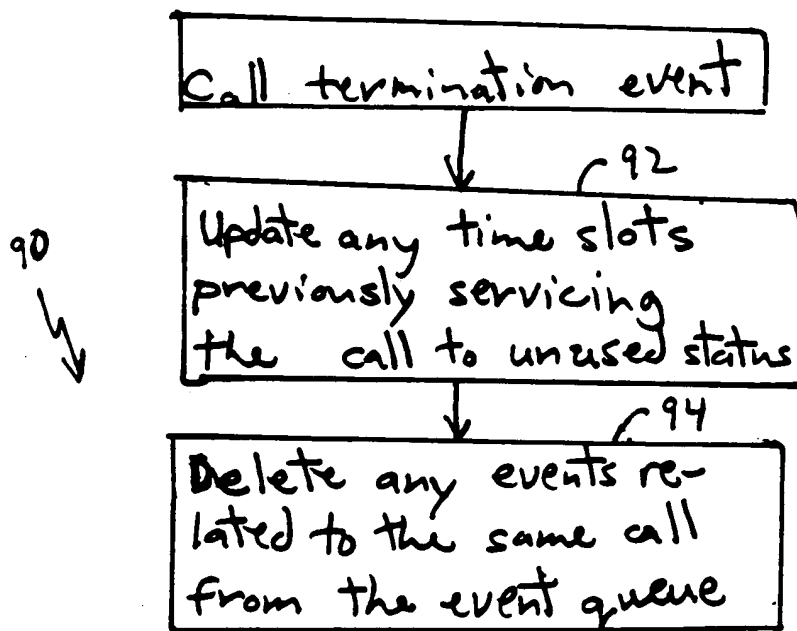 Call termination event
92
Update any time slots
previously servicing
the call to unused status
90
94
Delete any events re-
lated to the same call
from the event queue